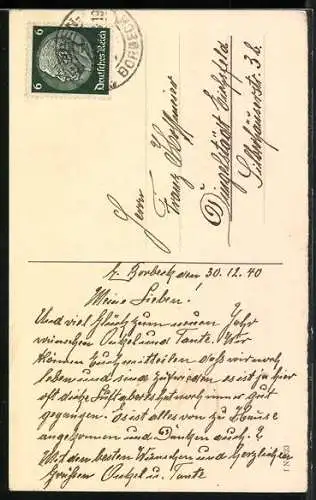 6
Deutsches Reich
6
Herrn
Franz
Dingelstädt Eichsfeld
Silberhäuserstr. 36
Borbeck den 30.12.40
Meine Lieben!
Und viel Glück zum neuen Jahr
wünschen Onkel und Tante. Wir
können Euch mitteilen daß wir noch
leben und sind zufrieden es ist ja hier
oft dicke Luft aber es hat noch immer gut
gegangen. Es ist alles von zu Hause
angekommen und Danken auch.
Mit den besten Wünschen und herzlichen
Grüßen Onkel u. Tante